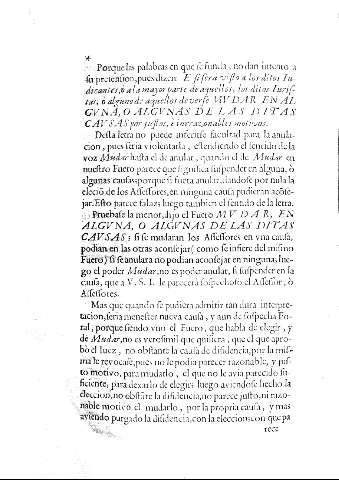 *
Porque las palabras en que se funda, no dan intento a
su pretension, pues dizen. E si sera visto a los ditos Iu-
dicantes, ò a la mayor parte de aquellos, los ditos Iuris-
tas, ò alguno de aquellos deverse MVDAR EN AL
GVNA, O ALGVNAS DE LAS DITAS
CAVSAS por justos, è inrrazonables motivos.
Desta letra no puede inferirse facultad para la anula-
cion, pues seria violentarla, estendiendo el sentido de la
voz Mudar hasta el de anular, quando el de Mudar en
nuestro Fuero parece que significa suspender en alguna, ò
algunas causas porque si fuera anular, dandose por nula la
elecciō de los Assessores, en ninguna causa pudieran acōse-
jar. Esto parece falaz luego tambien el sentido de la letra.
Pruebase la menor, dijo el Fuero MVDAR, EN
ALGVNA, O ALGVNAS DE LAS DITAS
CAVSAS; si se mudaran los Assessores en vna causa,
podian en las otras aconsejar (como se infiere del mismo
Fuero) si se anulara no podian aconsejar en ninguna, lue-
go el poder Mudar, no es poder anular, si suspender en la
causa, que a V. S. I. le parecerà sospechoso el Assessor, ò
Assessores.
Mas que quando se pudiera admitir tan dura interpre-
tacion, seria menester nueva causa, y aun de sospecha Fo-
ral, porque siendo vno el Fuero, que habla de elegir, y
de Mudar, no es verosimil que quisiera, que el que apro-
bò el Iuez, no obstante la causa de disidencia, por la mis-
ma le revocasse, pues no le podia parecer razonable, y jus-
to motivo, para mudarlo, el que no le avia parecido su-
ficiente, para dexarlo de elegir: luego aviendose hecho la
eleccion, no obstāte la disidencia, no parece justo, ni razo-
nable motivo el mudarlo, por la propria causa, y mas
aviendo purgado la disidencia, con la eleccion: con que pa
rece